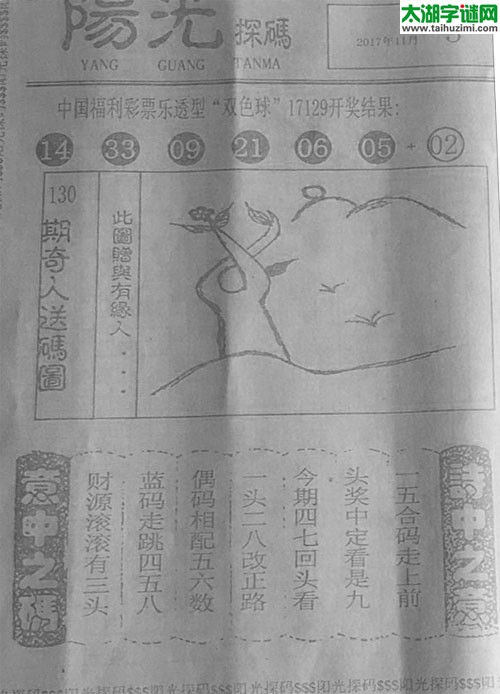 太湖字谜网
www.taihuzimi.com
陽光探碼
YANG GUANG TANMA
2017年11月 5
中国福利彩票乐透型“双色球”17129开奖结果:
14 33 09 21 06 05 + 02
130
期奇人送碼圖
此圖贈與有緣人....
一五合码走上前
头奖中定看是九
今期四七回头看
一头二八改正路
偶码相配五六数
蓝码走跳四五八
财源滚滚有三头
意中之碼
阳光探码$$$阳光探码$$$阳光探码$$$阳